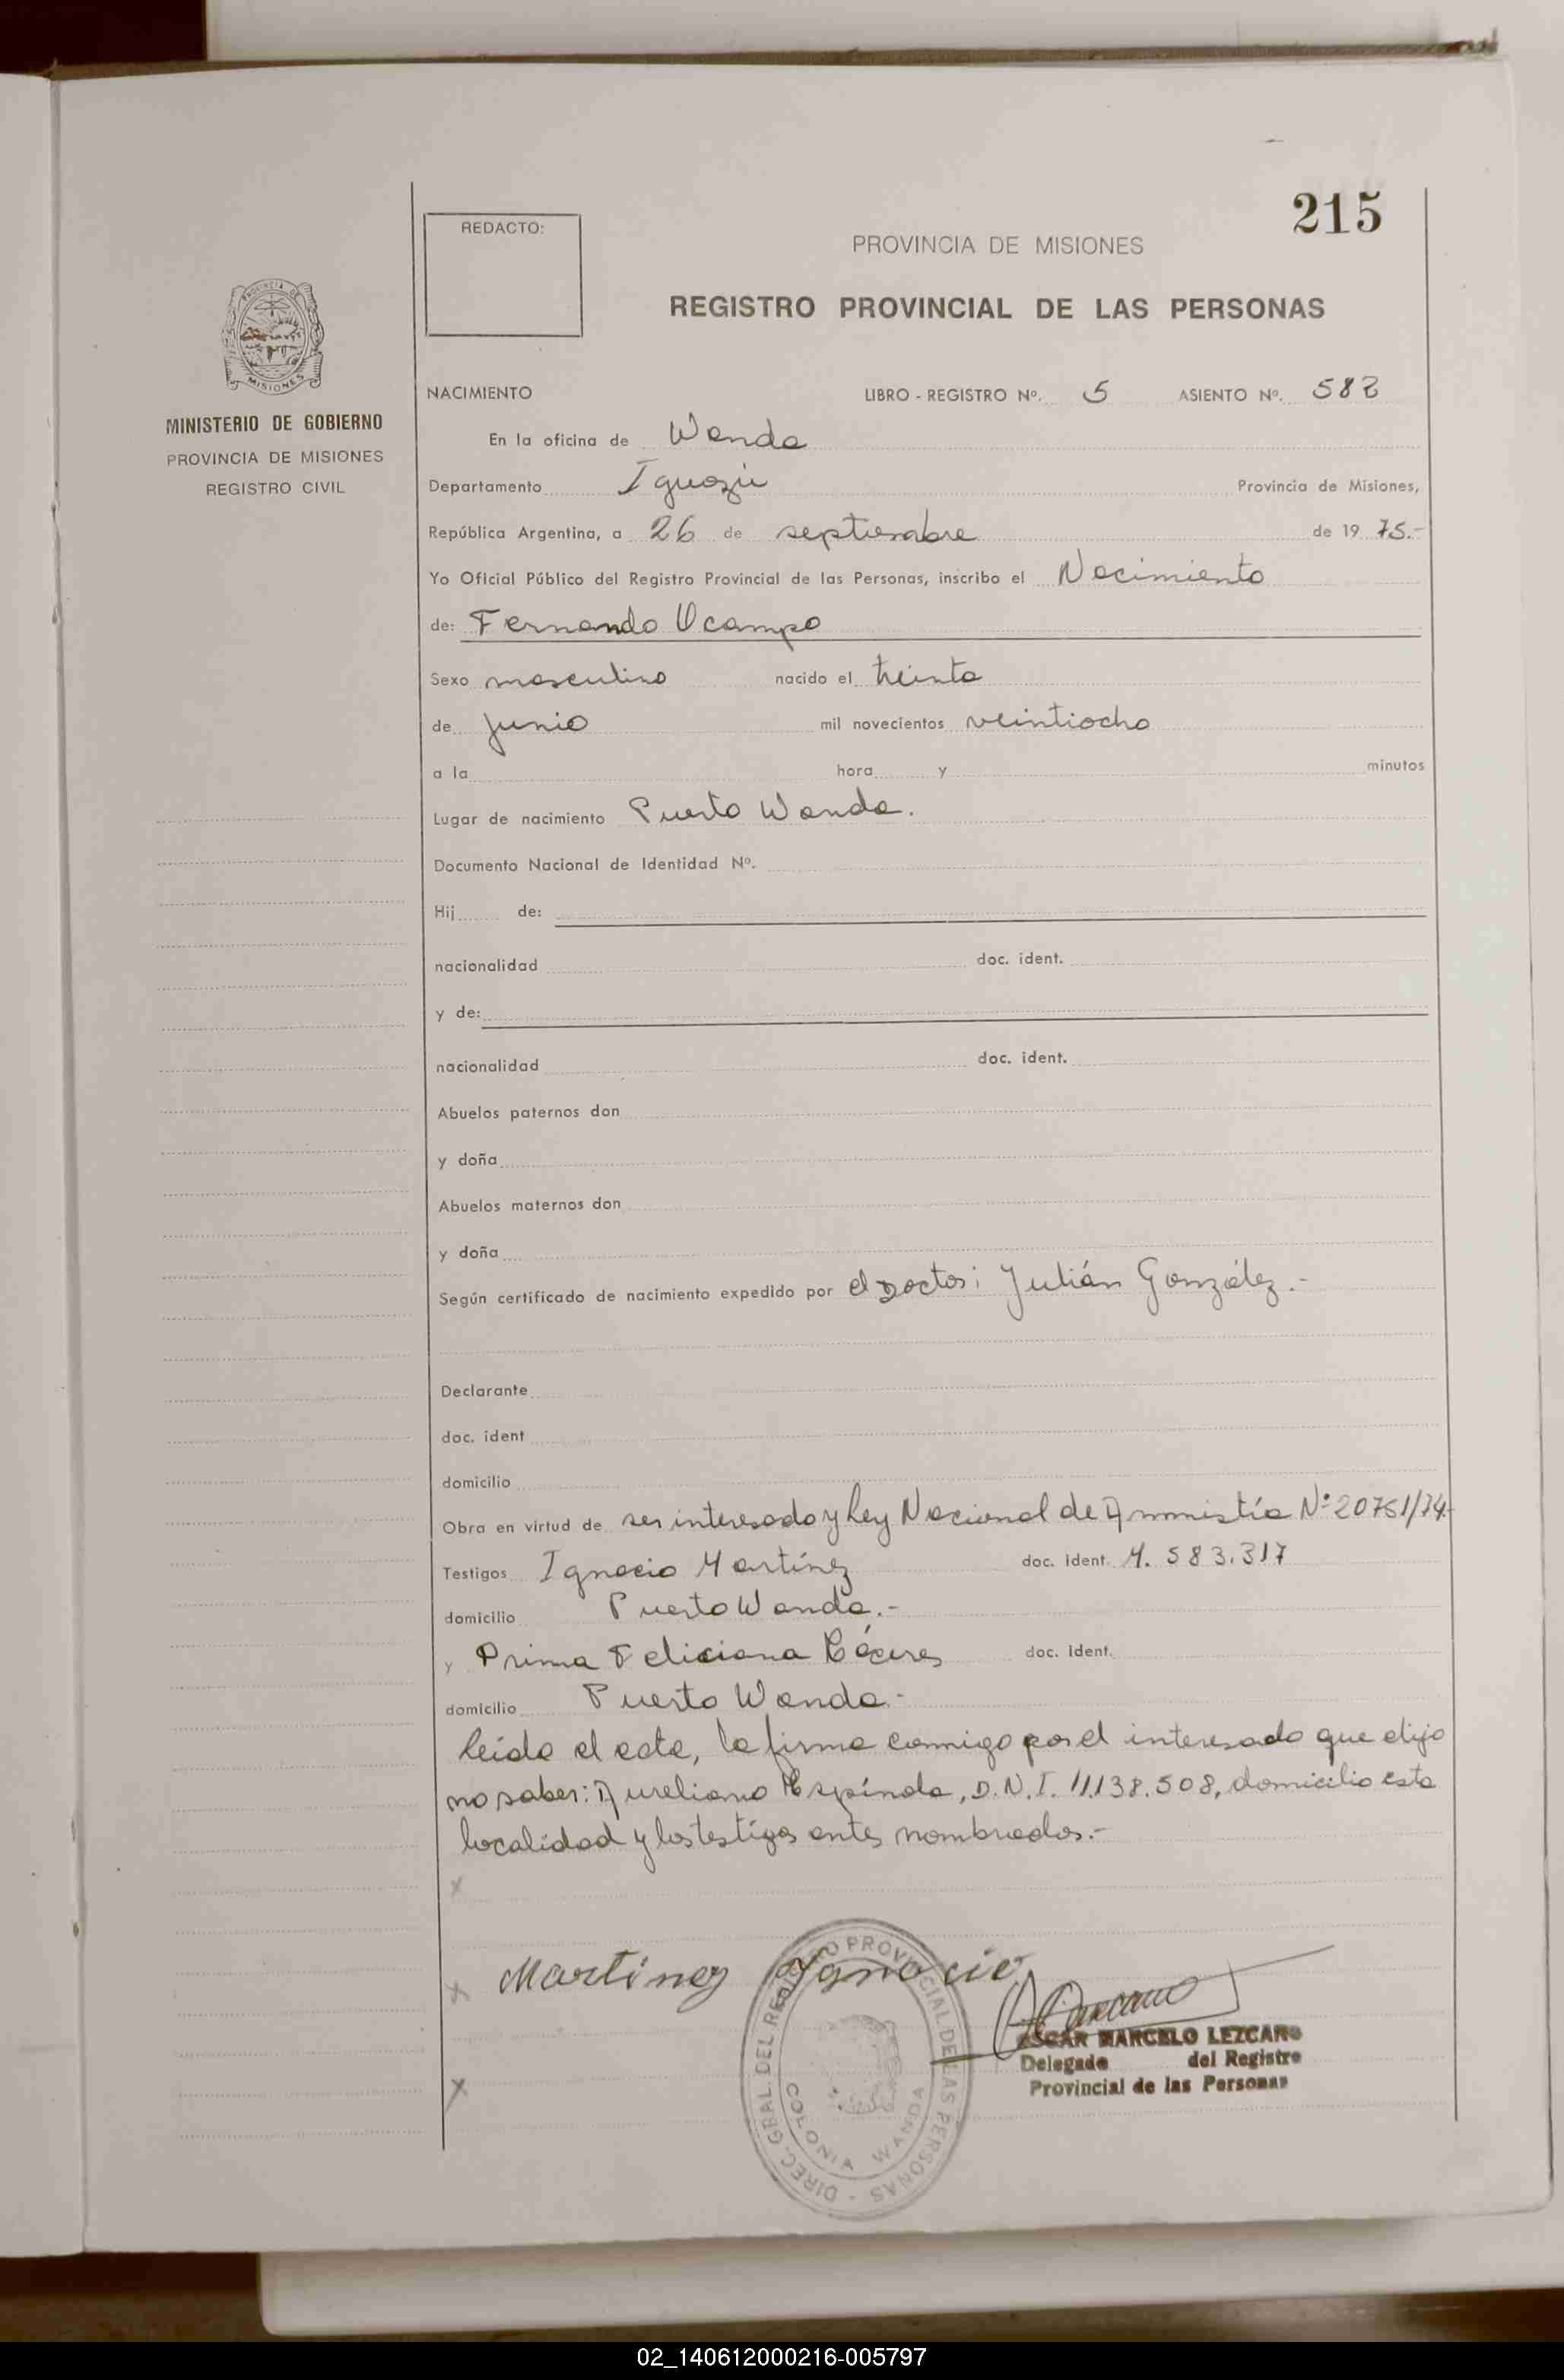 215
REDACTO:
PROVINCIA DE MISIONES
REGISTRO PROVINCIAL DE LAS PERSONAS
PROVINCIA DE
MISIONES
MINISTERIO DE GOBIERNO
PROVINCIA DE MISIONES
REGISTRO CIVIL
NACIMIENTO LIBRO - REGISTRO Nº. 5 ASIENTO Nº. 582
En la oficina de Wanda
Departamento Iguazú Provincia de Misiones,
República Argentina, a 26 de septiembre de 19 75.-
Yo Oficial Público del Registro Provincial de las Personas, inscribo el Nacimiento
de: Fernando Ocampo
Sexo masculino nacido el treinta
de junio mil novecientos veintiocho
a la hora y minutos
Lugar de nacimiento Puerto Wanda.
Documento Nacional de Identidad Nº.
Hij de:
nacionalidad doc. ident.
y de:
nacionalidad doc. ident.
Abuelos paternos don
y doña
Abuelos maternos don
y doña
Según certificado de nacimiento expedido por el Doctor: Julián González.-
Declarante
doc. ident
domicilio
Obra en virtud de ser interesado y Ley Nacional de Ammistía Nº 20751/74.
Testigos Ignacio Martínez doc. ident. M. 583.317
domicilio Puerto Wanda.-
y Prima Feliciana Cáceres doc. ident.
domicilio Puerto Wanda.-
leída el acta, la firma conmigo por el interesado que dijo
no saber: Aureliano Espínola, D.N.I. 11.138.508, domicilio esta
localidad y los testigos antes nombrados.-
x
x Martinez Ygnacio
x
OSCAR MARCELO LEZCANO
Delegado del Registro
Provincial de las Personas
DIREC. GRAL. DEL REGISTRO PROVINCIAL DE LAS PERSONAS -
COLONIA WANDA
02_140612000216-005797